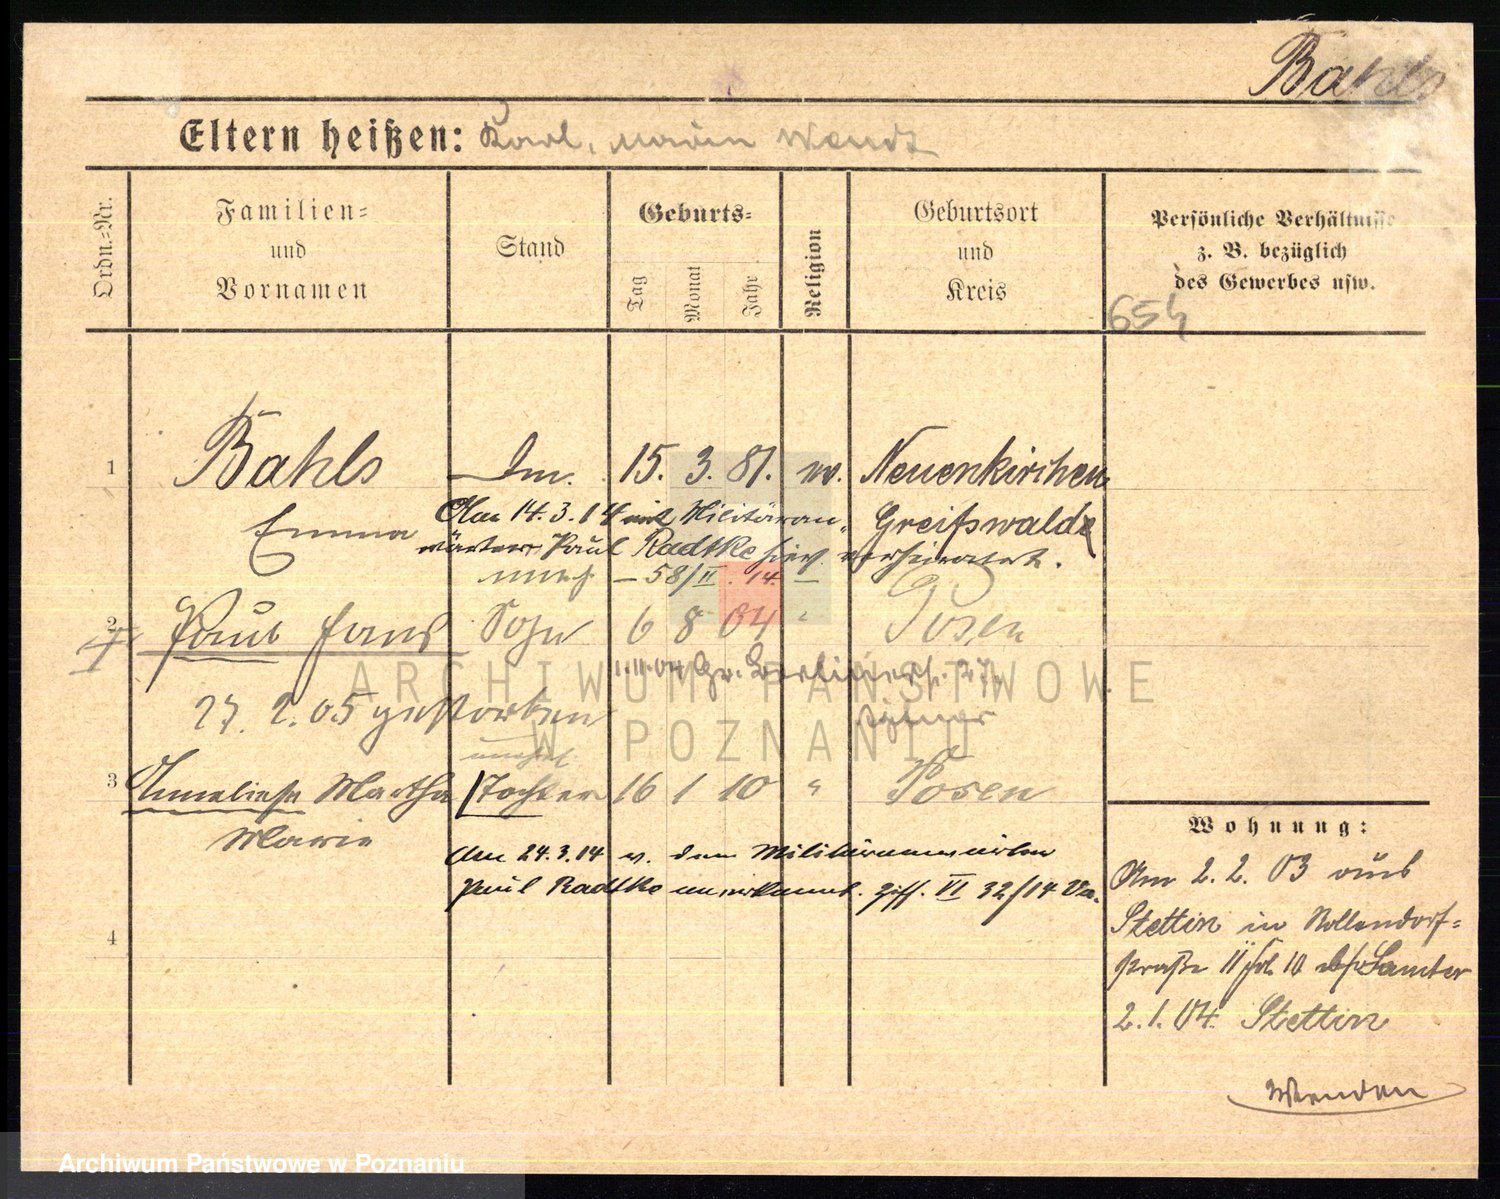 Bahls
Eltern heißen: Karl, Marie Wendt
Ordn.=Nr.
Familien=
und
Vornamen
Stand
Geburts=
Tag
Monat
Jahr
Religion
Geburtsort
und
Kreis
Persönliche Verhältnisse
z. B. bezüglich
des Gewerbes usw.
654
1 Bahls 15. 3. 81. Neuenkirchen
Emma Greifswald
Am 14.3.14 mit Militäran-
wärter Paul Radtke hier verheiratet.
– 58/II. 14. –
2 Paul Hans Sohn 6 8 04 " Posen
1.11.04 Gr. Berlinerst.
27. 2. 05 gestorben
unehel.
3 Anneliese Martha Tochter 16 1 10 " Posen
Marie
Am 24.3.14 v. dem Militäranwärter
Paul Radtke anerkannt. VI 32/14
4
Wohnung:
Am 2. 2. 03 aus
Stettin in Nollendorf=
straße 11 10 Samter
2.1.04. Stettin
Wenden
ARCHIWUM PAŃSTWOWE
W POZNANIU
Archiwum Państwowe w Poznaniu